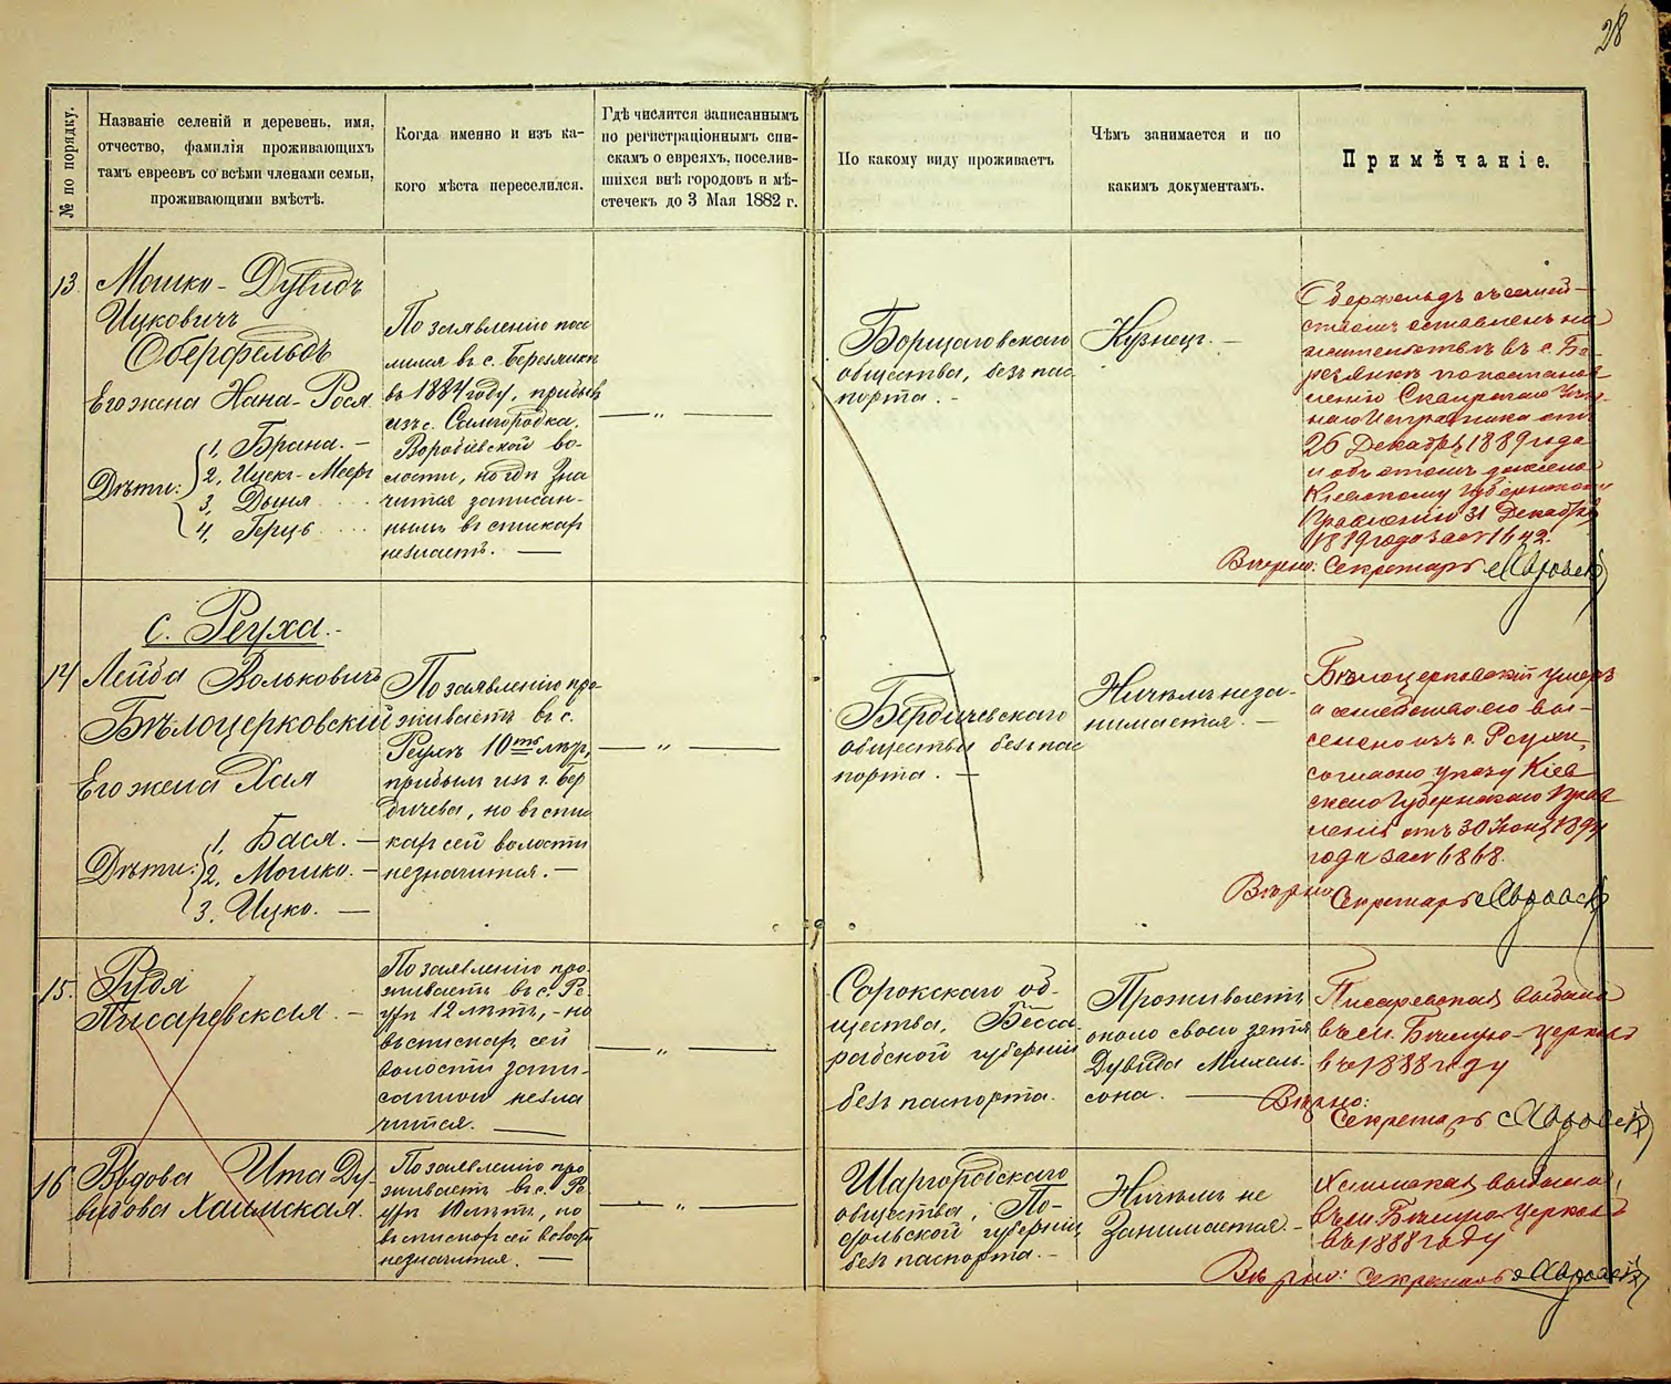 28
№ по порядку.
Названіе селеній и деревень, имя,
отчество, фамилія проживающихъ
тамъ евреевъ со всѣми членами семьи,
проживающими вмѣстѣ.
Когда именно и изъ ка-
кого мѣста переселился.
Гдѣ числится записаннымъ
по регистраціоннымъ спи-
скамъ о евреяхъ, поселив-
шихся внѣ городовъ и мѣ-
стечекъ до 3 Мая 1882 г.
По какому виду проживаетъ
Чѣмъ занимается и по
какимъ документамъ.
Примѣчаніе.
13
Мошко-Дувидъ
Ицковичъ
Оберфельдъ
Его жена Хана-Рося
Дѣти:
1, Брана. —
2, Ицек-Меер
3, Двыня
4, Герць
По заявленію посе
лился въ с. Березянки
въ 1884 году, прибылъ
изъ с. Самгородка,
волости, но гдѣ зна
чится записан-
нымъ въ спискахъ
незнаетъ. —
— „ —
Борщаговскаго
общества, безъ пас
порта. -
Кузнец. —
Оберфельдъ съ семей-
ствомъ оставленъ на
жительствѣ въ с. Бе-
резянкѣ по постанов-
ленію Сквирскаго Уѣзд-
наго Исправника отъ
26 Декабря 1889 года
и объ этомъ донесено
Кіевскому Губернскому
Правленію 31 Декабря
1889 года за № 1642.
Вѣрно: Секретарь
с. Реуха. -
14
Лейба Вольковичъ
Бѣлоцерковскій
Его жена Хая
Дѣти:
1, Бася. —
2, Мошко. —
3, Ицко. —
По заявленію про-
живаетъ въ с.
Реухѣ 10ть лѣтъ,
прибылъ изъ г. Бер
дичева, но въ спис
кахъ сей волости
незначится. —
— „ —
Бердичевскаго
общества безъ пас
порта. —
Ничѣмъ неза-
нимается. —
Бѣлоцерковскій умеръ
а семейство его вы-
селено изъ с. Реухи,
согласно указу Кіев
скаго Губернскаго Прав
ленія отъ 30 Іюня 189
года за № 6868.
Вѣрно Секретарь
15.
Рудя
Писаревская. —
По заявленію про-
живаетъ въ с. Ре
ухѣ 12 лѣтъ, - но
въ спискахъ сей
волости запи-
санною незна
чится. —
— „ —
Сорокскаго об-
щества, Бесса-
рабской губерніи
безъ паспорта.
Проживаетъ
около своего зятя
Дувида Михель-
сона. —
Писаревская выбыла
въ м. Бѣлую-Церковь
въ 1888 году
Вѣрно:
Секретарь
16
Вдова Ита Ду-
видова Хаимская.
По заявленію про
живаетъ въ с. Ре
ухѣ 10 лѣтъ, но
въ спискахъ сей волости
незначится. —
— „ —
Шаргородскаго
общества, По-
дольской губерніи,
безъ паспорта. -
Ничѣмъ не
занимается. -
Хаимская выбыла
въ м. Бѣлую-Церковь
въ 1888 году
Вѣрно: Секретарь